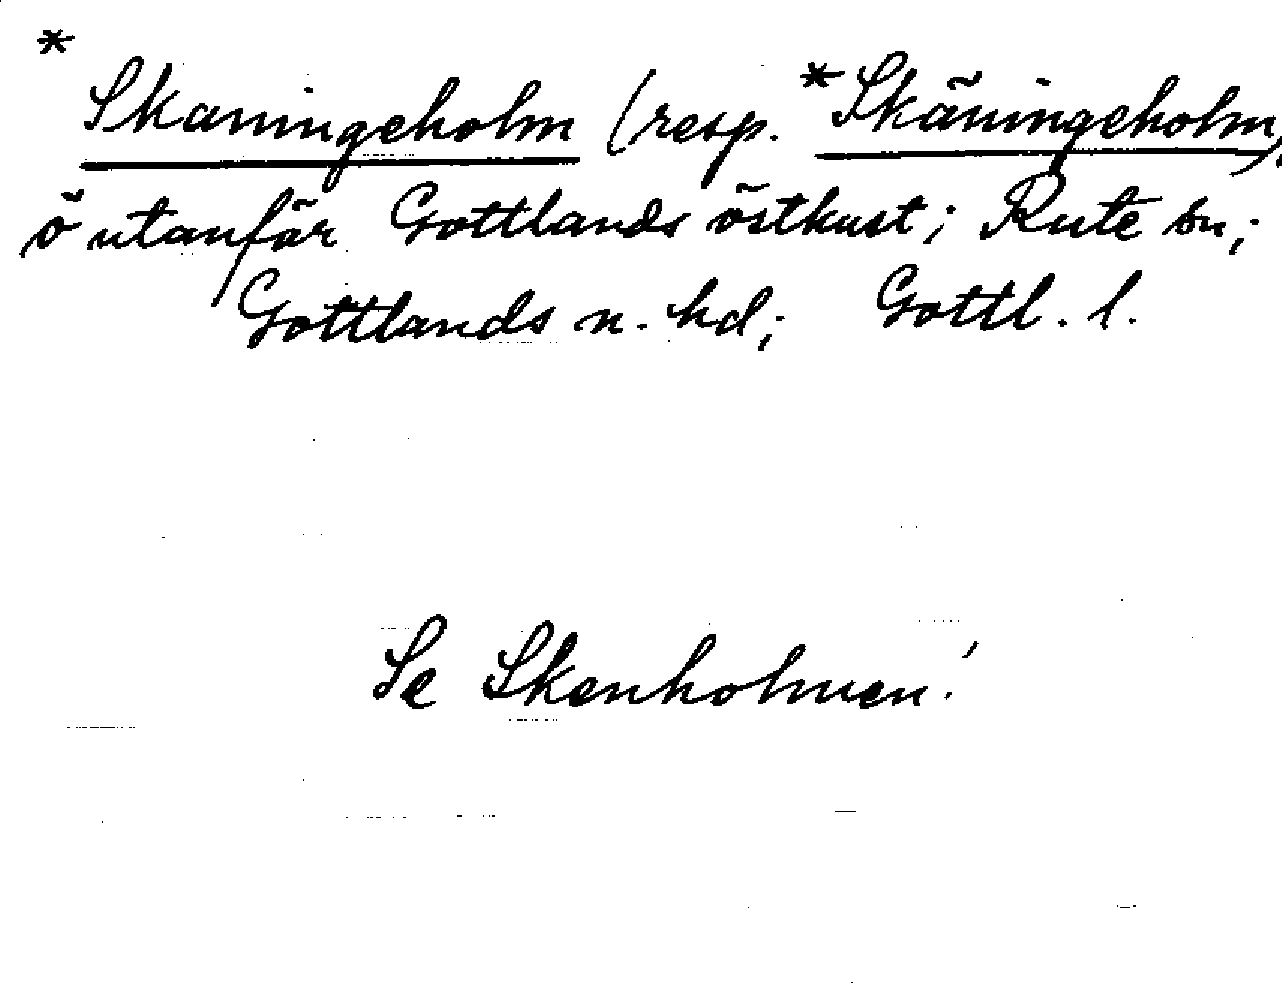 *Skaningeholm (resp. *Skäningeholm),
ö utanför Gottlands östkust; Rute sn;
Gottlands n. hd; Gottl. l.
Se Skenholmen!